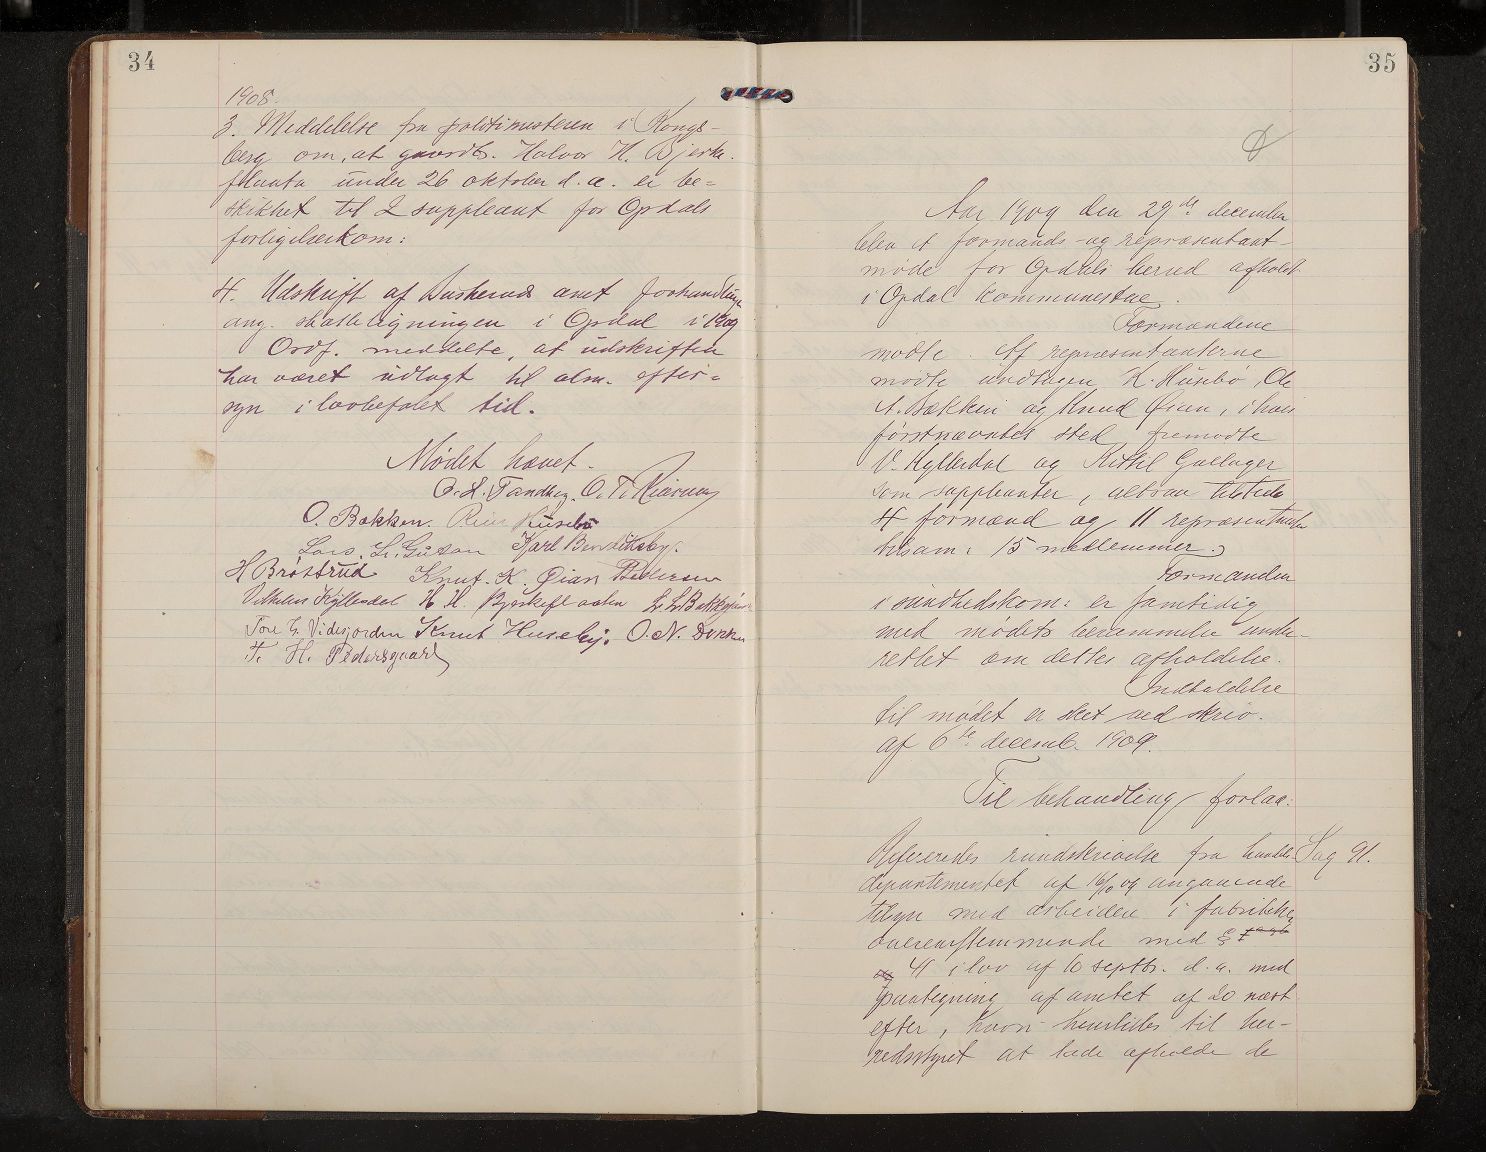 34
1908.
3. Meddelelse fra politimesteren i Kongs-
berg om, at gaardbr. Halvor H. Bjerke-
flaata under 26 oktober d. a. er be=
skikket til 2 suppleant for Opdals
forligelseskom:
4. Udskrift af Buskeruds amt forhandlinger
ang. skatteligningen i Opdal i 1909
Ordf. meddelte, at udskriften
har været udlagt til alm. efter=
syn i lovbefalet tid.
Mødet hævet.
O. H. Tandberg. O. T.
O. Bakken. Husebø
Lars. L. Karl Bendikeby.
H Brøstrud Knut. K. Øian Pedersen
Vilhelm Kyllesdal H H. Bjerkeflaaten L. L.
Tore G. Videsjorden Knut Huseby. O. N.
T. H. Pedersgaard
35
Aar 1909 den 29de december
blev et formands- og repræsentant-
møde for Opdals herred afholdt
i Opdal kommunestue.
Formændene
mødte. Af repræsentanterne
mødte undtagen K. Husebø, Ole
A. Bækken og Knud Øien, i hvis
førstnævntes sted fremødte
V. Kyllesdal og Kittil Gullager
som suppleanter, altsaa tilstede
4 formænd og 11 repræsentanter
tilsam: 15 medlemmer.
Formanden
i sundhedskom: er samtidig
med mødets berammelse under-
rettet om dettes afholdelse.
Indkaldelse
til mødet er skeet ved skriv.
af 6te decemb. 1909.
Til behandling forlaa:
Refereredes rundskrivelse fra handels Sag 91.
departementet af 16/10 09 angaaende
tilsyn med arbeidet i fabrikker
overensstemmende med §
41 i lov af 10 septbr. d. a. med
paategning af amtet af 20 næst
efter, hvori henstilles til her-
redsstyret at lade afholde de